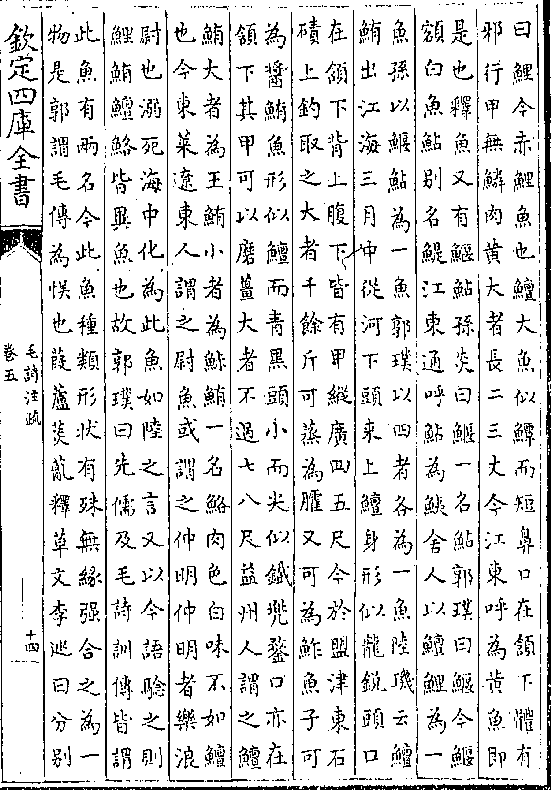 曰鯉今赤鯉魚也鱣大魚似鱏而短鼻口在頷下體有
邪行甲無鱗肉黄大者長二三丈今江東呼為黄魚即
是也釋魚又有鰋鮎孫炎曰鰋一名鮎郭璞曰鰋今鰋
額白魚鮎别名鯷江東通呼鮎為鮧舍人以鱣鯉為一
魚孫以鰋鮎為一魚郭璞以四者各為一魚陸璣云鱣
鮪出江海三月中從河下頭來上鱣身形似龍鋭頭口
在頷下背上腹下皆有甲縱廣四五尺今於盟津東石
磧上釣取之大者千餘斤可蒸為臛又可為鮓魚子可
為醬鮪魚形似鱣而青黑頭小而尖似鐵兠鍪口亦在
頷下其甲可以磨薑大者不過七八尺益州人謂之鱣
鮪大者為王鮪小者為鮛鮪一名鮥肉色白味不如鱣
也今東萊遼東人謂之尉魚或謂之仲明仲明者樂浪
尉也溺死海中化為此魚如陸之言又以今語驗之則
鯉鮪鱣鮥皆異魚也故郭璞曰先儒及毛詩訓傳皆謂
此魚有兩名今此魚種類形状有殊無緣强合之為一
物是郭謂毛傳為悞也葭蘆菼薍釋草文李廵曰分别
欽定四庫全書
毛詩注疏
卷五
十四